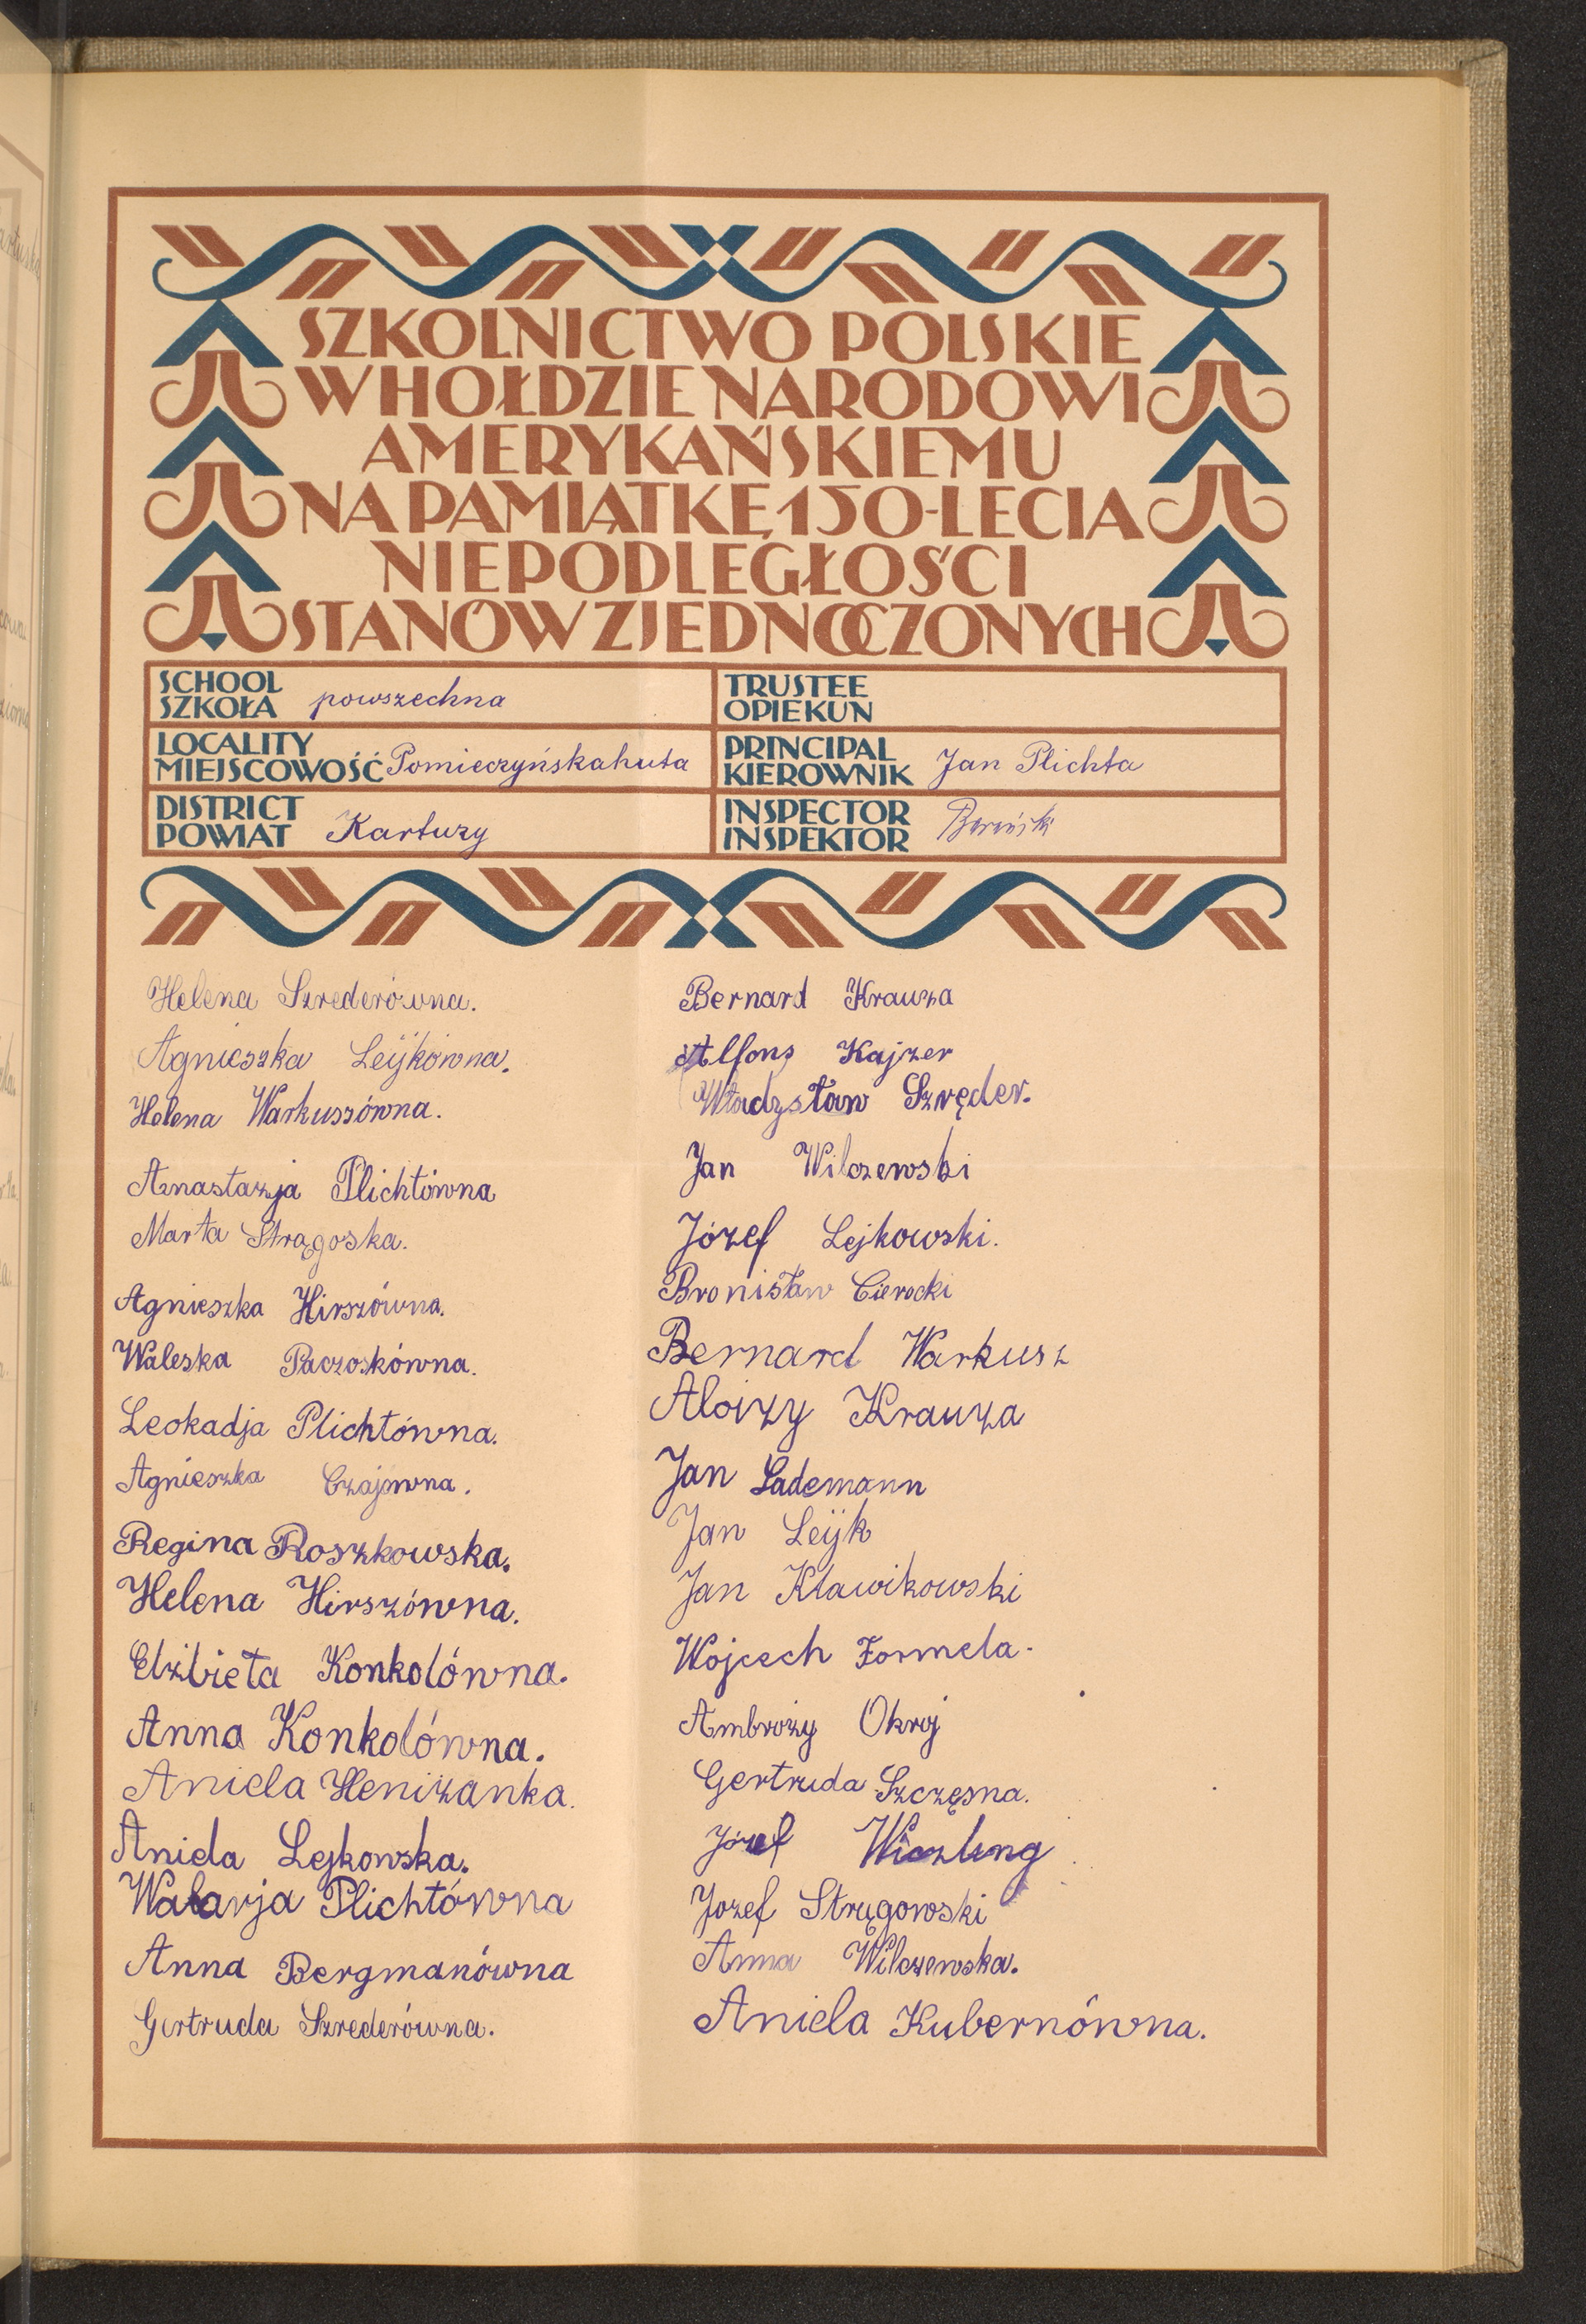 SZKOLNICTWO POLSKIE
W HOŁDZIE NARODOWI
AMERYKAŃSKIEMU
NA PAMIĄTKĘ 150-LECIA
NIEPODLEGŁOŚCI
STANÓW ZJEDNOCZONYCH
SCHOOL
SZKOŁA powszechna
TRUSTEE
OPIEKUN
LOCALITY
MIEJSCOWOŚĆ Pomieczyńskahuta
PRINCIPAL
KIEROWNIK Jan Plichta
DISTRICT
POWIAT Kartuzy
INSPECTOR
INSPEKTOR
Helena Szrederówna.
Agnieszka Leÿkówna.
Helena Warkuszówna.
Anastazja Plichtówna
Marta Strągoska.
Agnieszka Hirszówna.
Waleska Paczoskówna.
Leokadja Plichtówna.
Agnieszka Czajówna.
Regina Roszkowska.
Helena Hirszówna.
Elżbieta Konkolówna.
Anna Konkolówna.
Aniela Henizanka.
Aniela Lejkowska.
Walarja Plichtówna
Anna Bergmanówna
Gertruda Szrederówna.
Bernard Krauza
Alfons Kajzer
Władysław Szręder.
Jan Wilczewski
Józef Lejkowski.
Bronisław Cierocki
Bernard Warkusz
Aloizy Krauza
Jan Lademann
Jan Leÿk
Jan Klawikowski
Wojcech Formela.
Ambroży Okroj
Gertruda Szczęsna.
Józef
Jozef Strągowski
Anna Wilczewska.
Aniela Kubernówna.